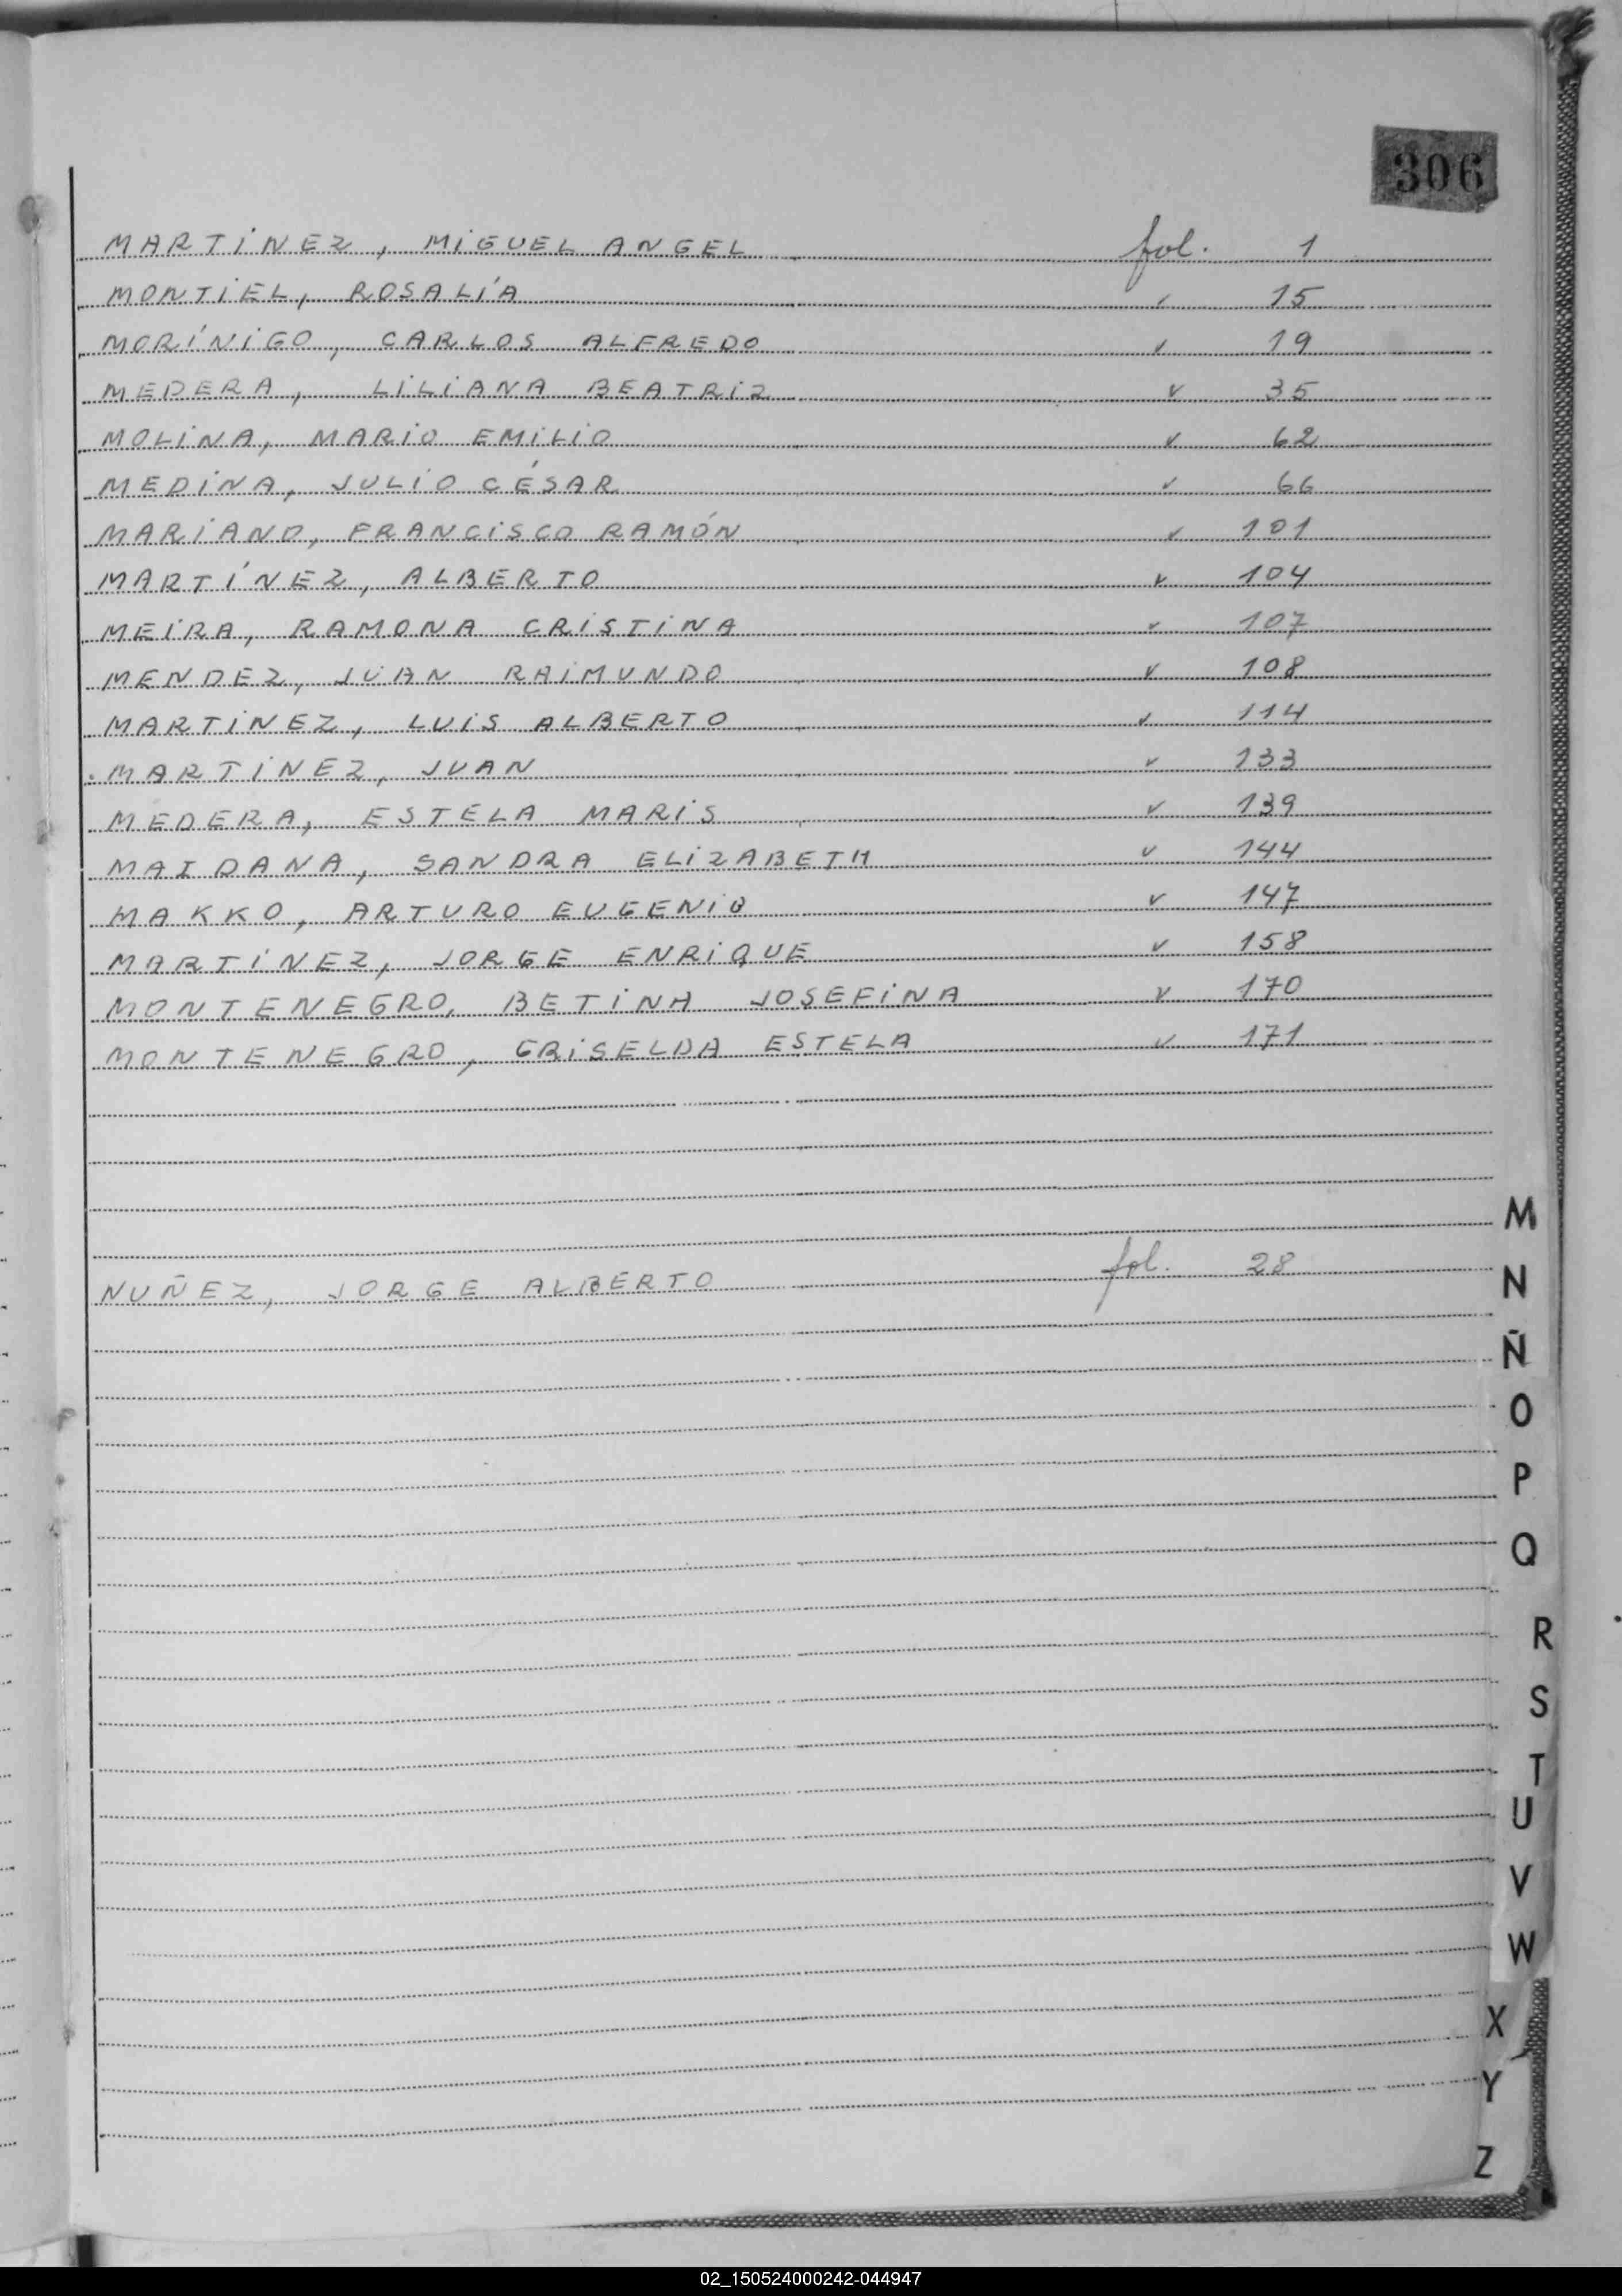 306
MARTÍNEZ, MIGUEL ANGEL fol. 1
MONTIEL, ROSALÍA ✓ 15
MORÍNIGO, CARLOS ALFREDO ✓ 19
MEDERA, LILIANA BEATRIZ ✓ 35
MOLINA, MARIO EMILIO ✓ 62
MEDINA, JULIO CÉSAR ✓ 66
MARIANO, FRANCISCO RAMÓN ✓ 101
MARTÍNEZ, ALBERTO ✓ 104
MEIRA, RAMONA CRISTINA ✓ 107
MENDEZ, JUAN RAIMUNDO ✓ 108
MARTINEZ, LUIS ALBERTO ✓ 114
MARTINEZ, JUAN ✓ 133
MEDERA, ESTELA MARIS ✓ 139
MAIDANA, SANDRA ELIZABETH ✓ 144
MAKKO, ARTURO EUGENIO ✓ 147
MARTINEZ, JORGE ENRIQUE ✓ 158
MONTENEGRO, BETINA JOSEFINA ✓ 170
MONTENEGRO, GRISELDA ESTELA ✓ 171
M
NUÑEZ, JORGE ALBERTO fol. 28
N
Ñ
O
P
Q
R
S
T
U
V
W
X
Y
Z
02_150524000242-044947